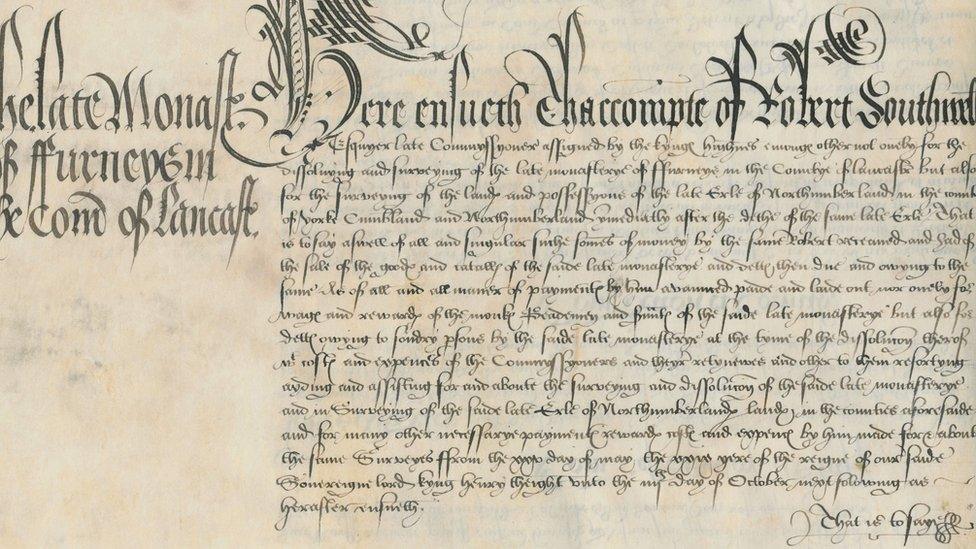 he late Monast
of ffurneys in
the Com of Lancast.
Here ensueth Thaccompte of Robert Southwell
Esquyer late Commyssyoner assigned by the kynges highnes emonges other not onely for the
dissolving and surveying of the late monasterye of ffurneys in the Countye of lancastre but also
for the surveying of the landes and possessyons of the late Erle of Northumberland in the counties
of Yorke Cumbland and Northumberland ymediatly after the dethe of the same late Erle That
is to say aswell of all and singular suche somes of money by the same Robert receaved and had of
the sale of the goodes and catalles of the saide late monasterye and dettes then due and owying to the
same As of all and all maner of paymentes by him avaunced paide and laide out nor onely for
wages and rewardes of the monkes and s'untes of the saide late monasterye but also for
dettes owying to sondry psons by the saide late monasterye at the tyme of the dissolucon therof
wt costes and expences of the Commyssyoners and theyr retynewes and other to them resortyng
ayding and assisting for and aboute the surveying and dissolucon of the saide late monasterye
and in Surveying of the saide late Erle of Northumberlandes landes in the counties aforesaide
and for many other necessarye paymentes rewardes costes and expences by him made aboute
the same Surveyes ffrom the xxx day of may the xxix yere of the reigne of our saide
Sovereigne lord kyng henry theight unto the day of October next folowing as
herafter ensueth.
That is to saye